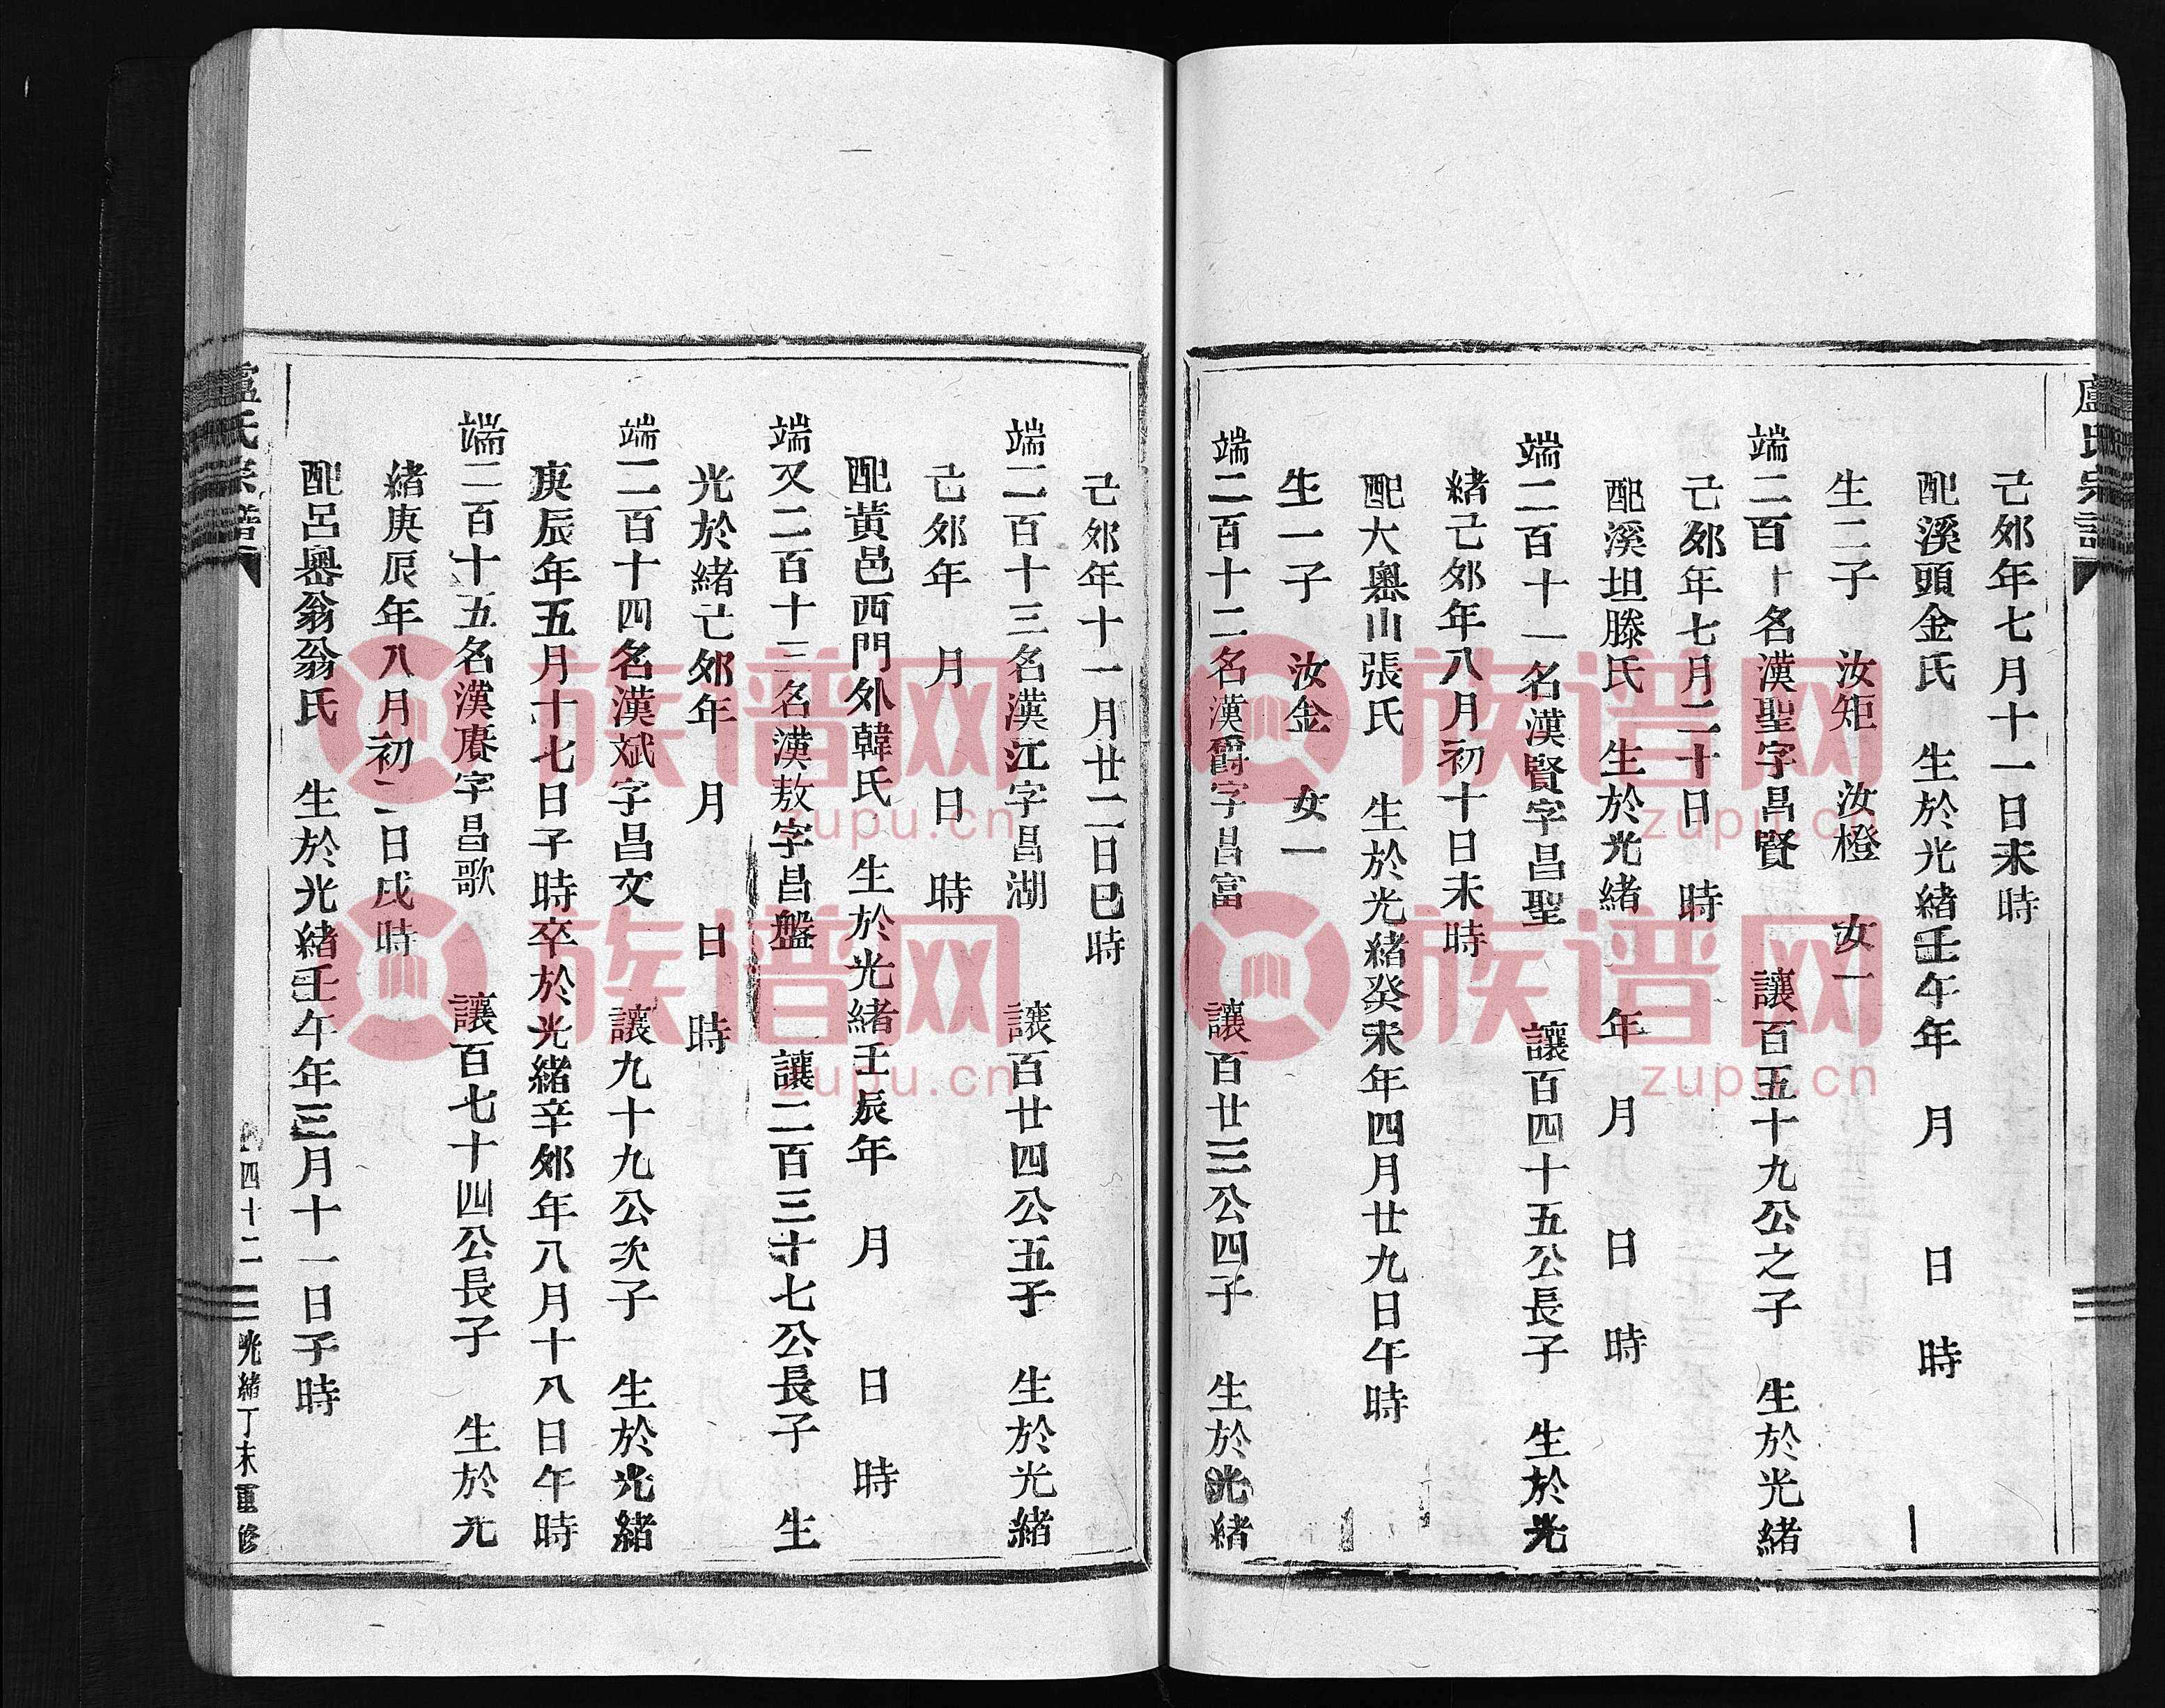 盧氏宗譜
己夘年七月十一日未時
配溪頭金氏 生於光緒壬午年 月 日 時
生二子 汝矩 汝橙 女一
端二百十名漢聖字昌賢 讓百五十九公之子 生於光緒
己夘年七月二十日 時
配溪坦滕氏 生於光緒 年 月 日 時
端二百十一名漢賢字昌聖 讓百四十五公長子 生於光
緒己夘年八月初十日未時
配大嶴山張氏 生於光緒癸未年四月廿九日午時
生一子 汝金 女一
端二百十二名漢爵字昌富 讓百廿三公四子 生於光緒
己夘年十一月廿二日巳時
端二百十三名漢江字昌湖 讓百廿四公五子 生於光緒
己夘年 月 日 時
配黄邑西門外韓氏 生於光緒壬辰年 月 日 時
端又二百十三名漢敖字昌盤 讓二百三十七公長子 生
光於緒己夘年 月 日 時
端二百十四名漢斌字昌文 讓九十九公次子 生於光緒
庚辰年五月十七日子時卒於光緒辛夘年八月十八日午時
端二百十五名漢賡字昌歌 讓百七十四公長子 生於光
緒庚辰年八月初二日戌時
配呂嶴翁翁氏 生於光緒壬午年三月十一日子時
盧氏宗譜
四十二
光緒丁未重修
族谱网
zupu.cn
族谱网
zupu.cn
族谱网
zupu.cn
族谱网
zupu.cn